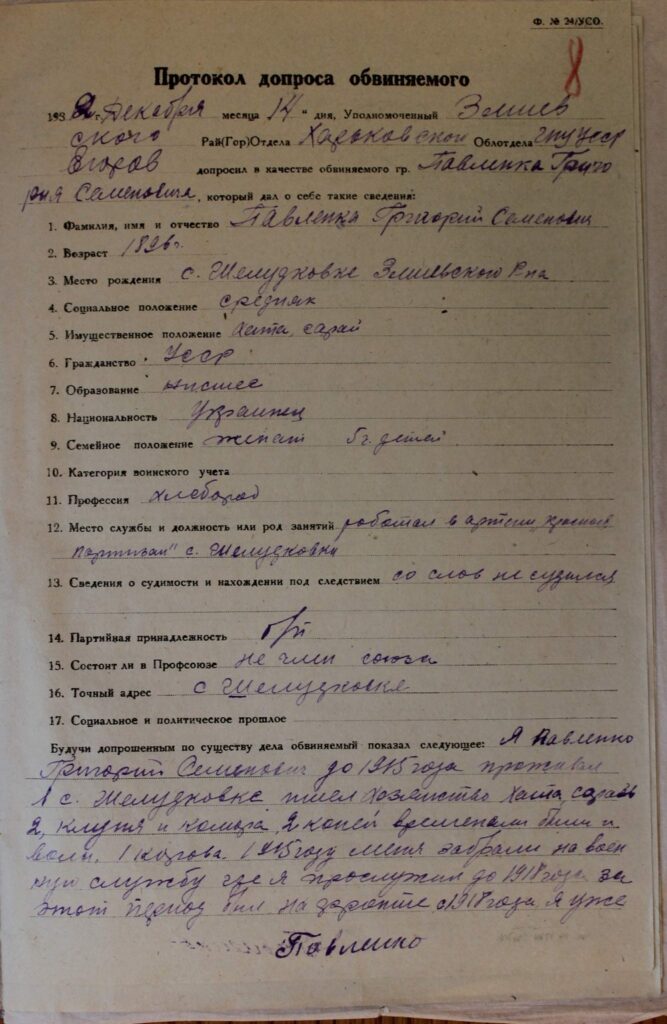 Ф. № 24/УСО.
8
Протокол допроса обвиняемого
1932 г. Декабря месяца 14 дня, Уполномоченный Змиев
ского Рай(Гор)Отдела Харьковской Облотдела ГПУ УССР
Егоров допросил в качестве обвиняемого гр. Павленка Григо
рия Семеновича, который дал о себе такие сведения:
1. Фамилия, имя и отчество Павленка Григорий Семенович
2. Возраст 1896 г.
3. Место рождения с. Шелудковке Змиевского Р-на
4. Социальное положение средняк
5. Имущественное положение хата, сарай
6. Гражданство УССР
7. Образование низшее
8. Национальность Украинец
9. Семейное положение женат 5 ч. детей
10. Категория воинского учета
11. Профессия хлебороб
12. Место службы и должность или род занятий работал в артели „красный
партизан" с. Шелудковки
13. Сведения о судимости и нахождении под следствием со слов не судился
14. Партийная принадлежность б/п
15. Состоит ли в Профсоюзе не член союза
16. Точный адрес с Шелудковке
17. Социальное и политическое прошлое
Будучи допрошенным по существу дела обвиняемый показал следующее: Я Павленко
Григорий Семенович до 1915 года проживал
в с. Шелудковке имел хозяйство хата, сарай
2, клуня и комора, 2 коней временами были и
волы, 1 корова. 1915 году меня забрали на воен
ную службу где я прослужил до 1918 года за
этот период был на фронте с 1918 года я уже
Павленко